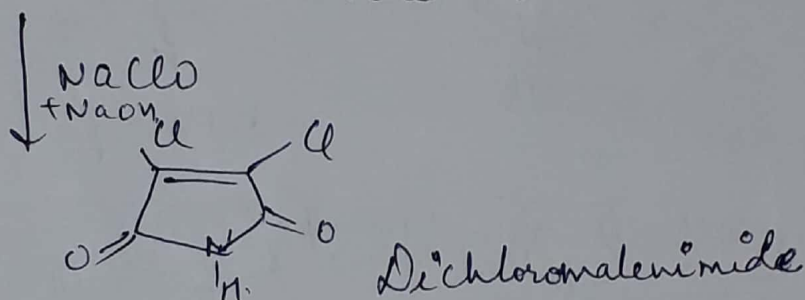 NaClO
+NaOH
Cl Cl
O N O
H.
Dichloromalenimide